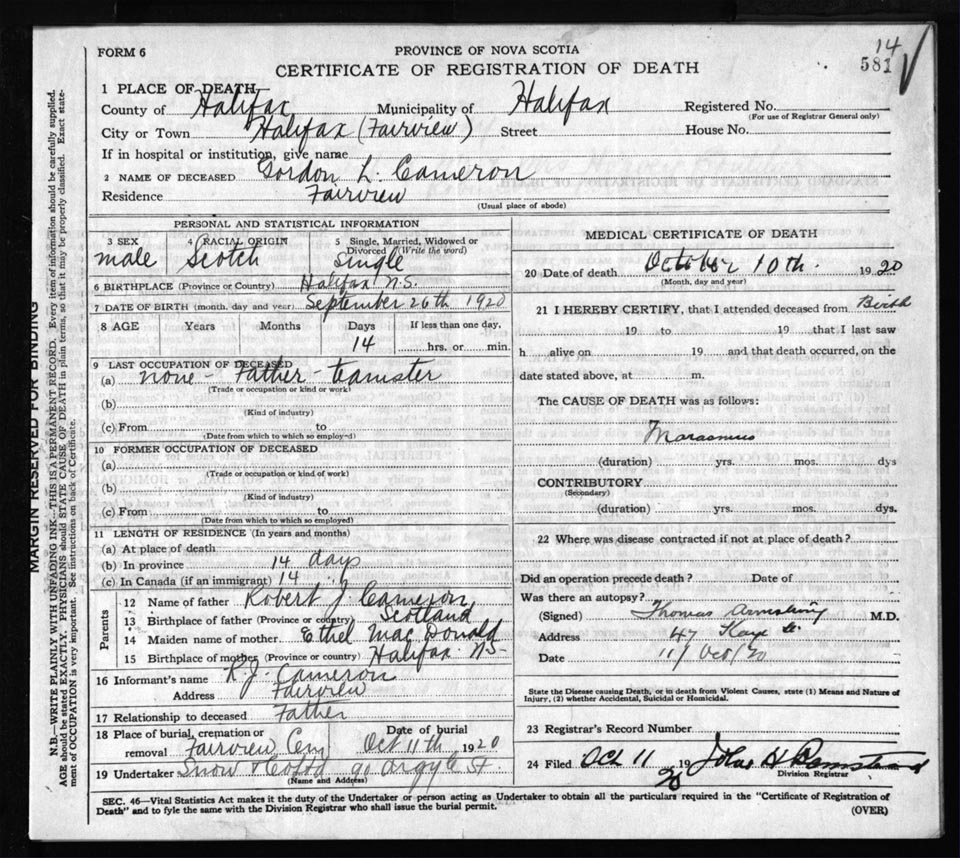 FORM 6
PROVINCE OF NOVA SCOTIA
CERTIFICATE OF REGISTRATION OF DEATH
14
581
1 PLACE OF DEATH
County of Halifax Municipality of Halifax Registered No.
(For use of Registrar General only)
City or Town Halifax (Fairview) Street House No.
If in hospital or institution, give name
2 NAME OF DECEASED Gordon L. Cameron
Residence Fairview
(Usual place of abode)
PERSONAL AND STATISTICAL INFORMATION
3 SEX 4 RACIAL ORIGIN 5 Single, Married, Widowed or Divorced (Write the word)
male Scotch Single
6 BIRTHPLACE (Province or Country) Halifax N.S.
7 DATE OF BIRTH (month, day and year) September 26th 1920
8 AGE Years Months Days If less than one day,
14 hrs. or min.
9 LAST OCCUPATION OF DECEASED
(a) none - Father - Teamster
(Trade or occupation or kind or work)
(b)
(Kind of industry)
(c) From to
(Date from which to which so employed)
10 FORMER OCCUPATION OF DECEASED
(a)
(Trade or occupation or kind of work)
(b)
(Kind of industry)
(c) From to
(Date from which to which so employed)
11 LENGTH OF RESIDENCE (In years and months)
(a) At place of death
(b) In province 14 days
(c) In Canada (if an immigrant) 14
Parents
12 Name of father Robert J. Cameron
13 Birthplace of father (Province or country) Scotland
14 Maiden name of mother Ethel MacDonald
15 Birthplace of mother (Province or country) Halifax N.S.
16 Informant's name R. J. Cameron
Address Fairview
17 Relationship to deceased Father
18 Place of burial, cremation or removal Fairview Cem Date of burial Oct 11th 1920
19 Undertaker Snow & Co Ltd 90 Argyle St.
(Name and Address)
MEDICAL CERTIFICATE OF DEATH
20 Date of death October 10th. 1920
(Month, day and year)
21 I HEREBY CERTIFY, that I attended deceased from Birth
19 to 19 that I last saw
h alive on 19 and that death occurred, on the
date stated above, at m.
The CAUSE OF DEATH was as follows:
Marasmus
(duration) yrs. mos. dys
CONTRIBUTORY
(Secondary)
(duration) yrs. mos. dys.
22 Where was disease contracted if not at place of death?
Did an operation precede death? Date of
Was there an autopsy?
(Signed) Thomas Armstrong M.D.
Address 47 Kaye St
Date 11/ Oct/20
State the Disease causing Death, or in death from Violent Causes, state (1) Means and Nature of
Injury, (2) whether Accidental, Suicidal or Homicidal.
23 Registrar's Record Number
24 Filed Oct 11 1920 John H
Division Registrar
SEC. 46—Vital Statistics Act makes it the duty of the Undertaker or person acting as Undertaker to obtain all the particulars required in the "Certificate of Registration of
Death" and to fyle the same with the Division Registrar who shall issue the burial permit.
(OVER)
MARGIN RESERVED FOR BINDING
N.B.—WRITE PLAINLY WITH UNFADING INK—THIS IS A PERMANENT RECORD. Every item of information should be carefully supplied.
AGE should be stated EXACTLY. PHYSICIANS should STATE CAUSE OF DEATH in plain terms, so that it may be properly classified. Exact statement of OCCUPATION is very important. See instructions on back of Certificate.